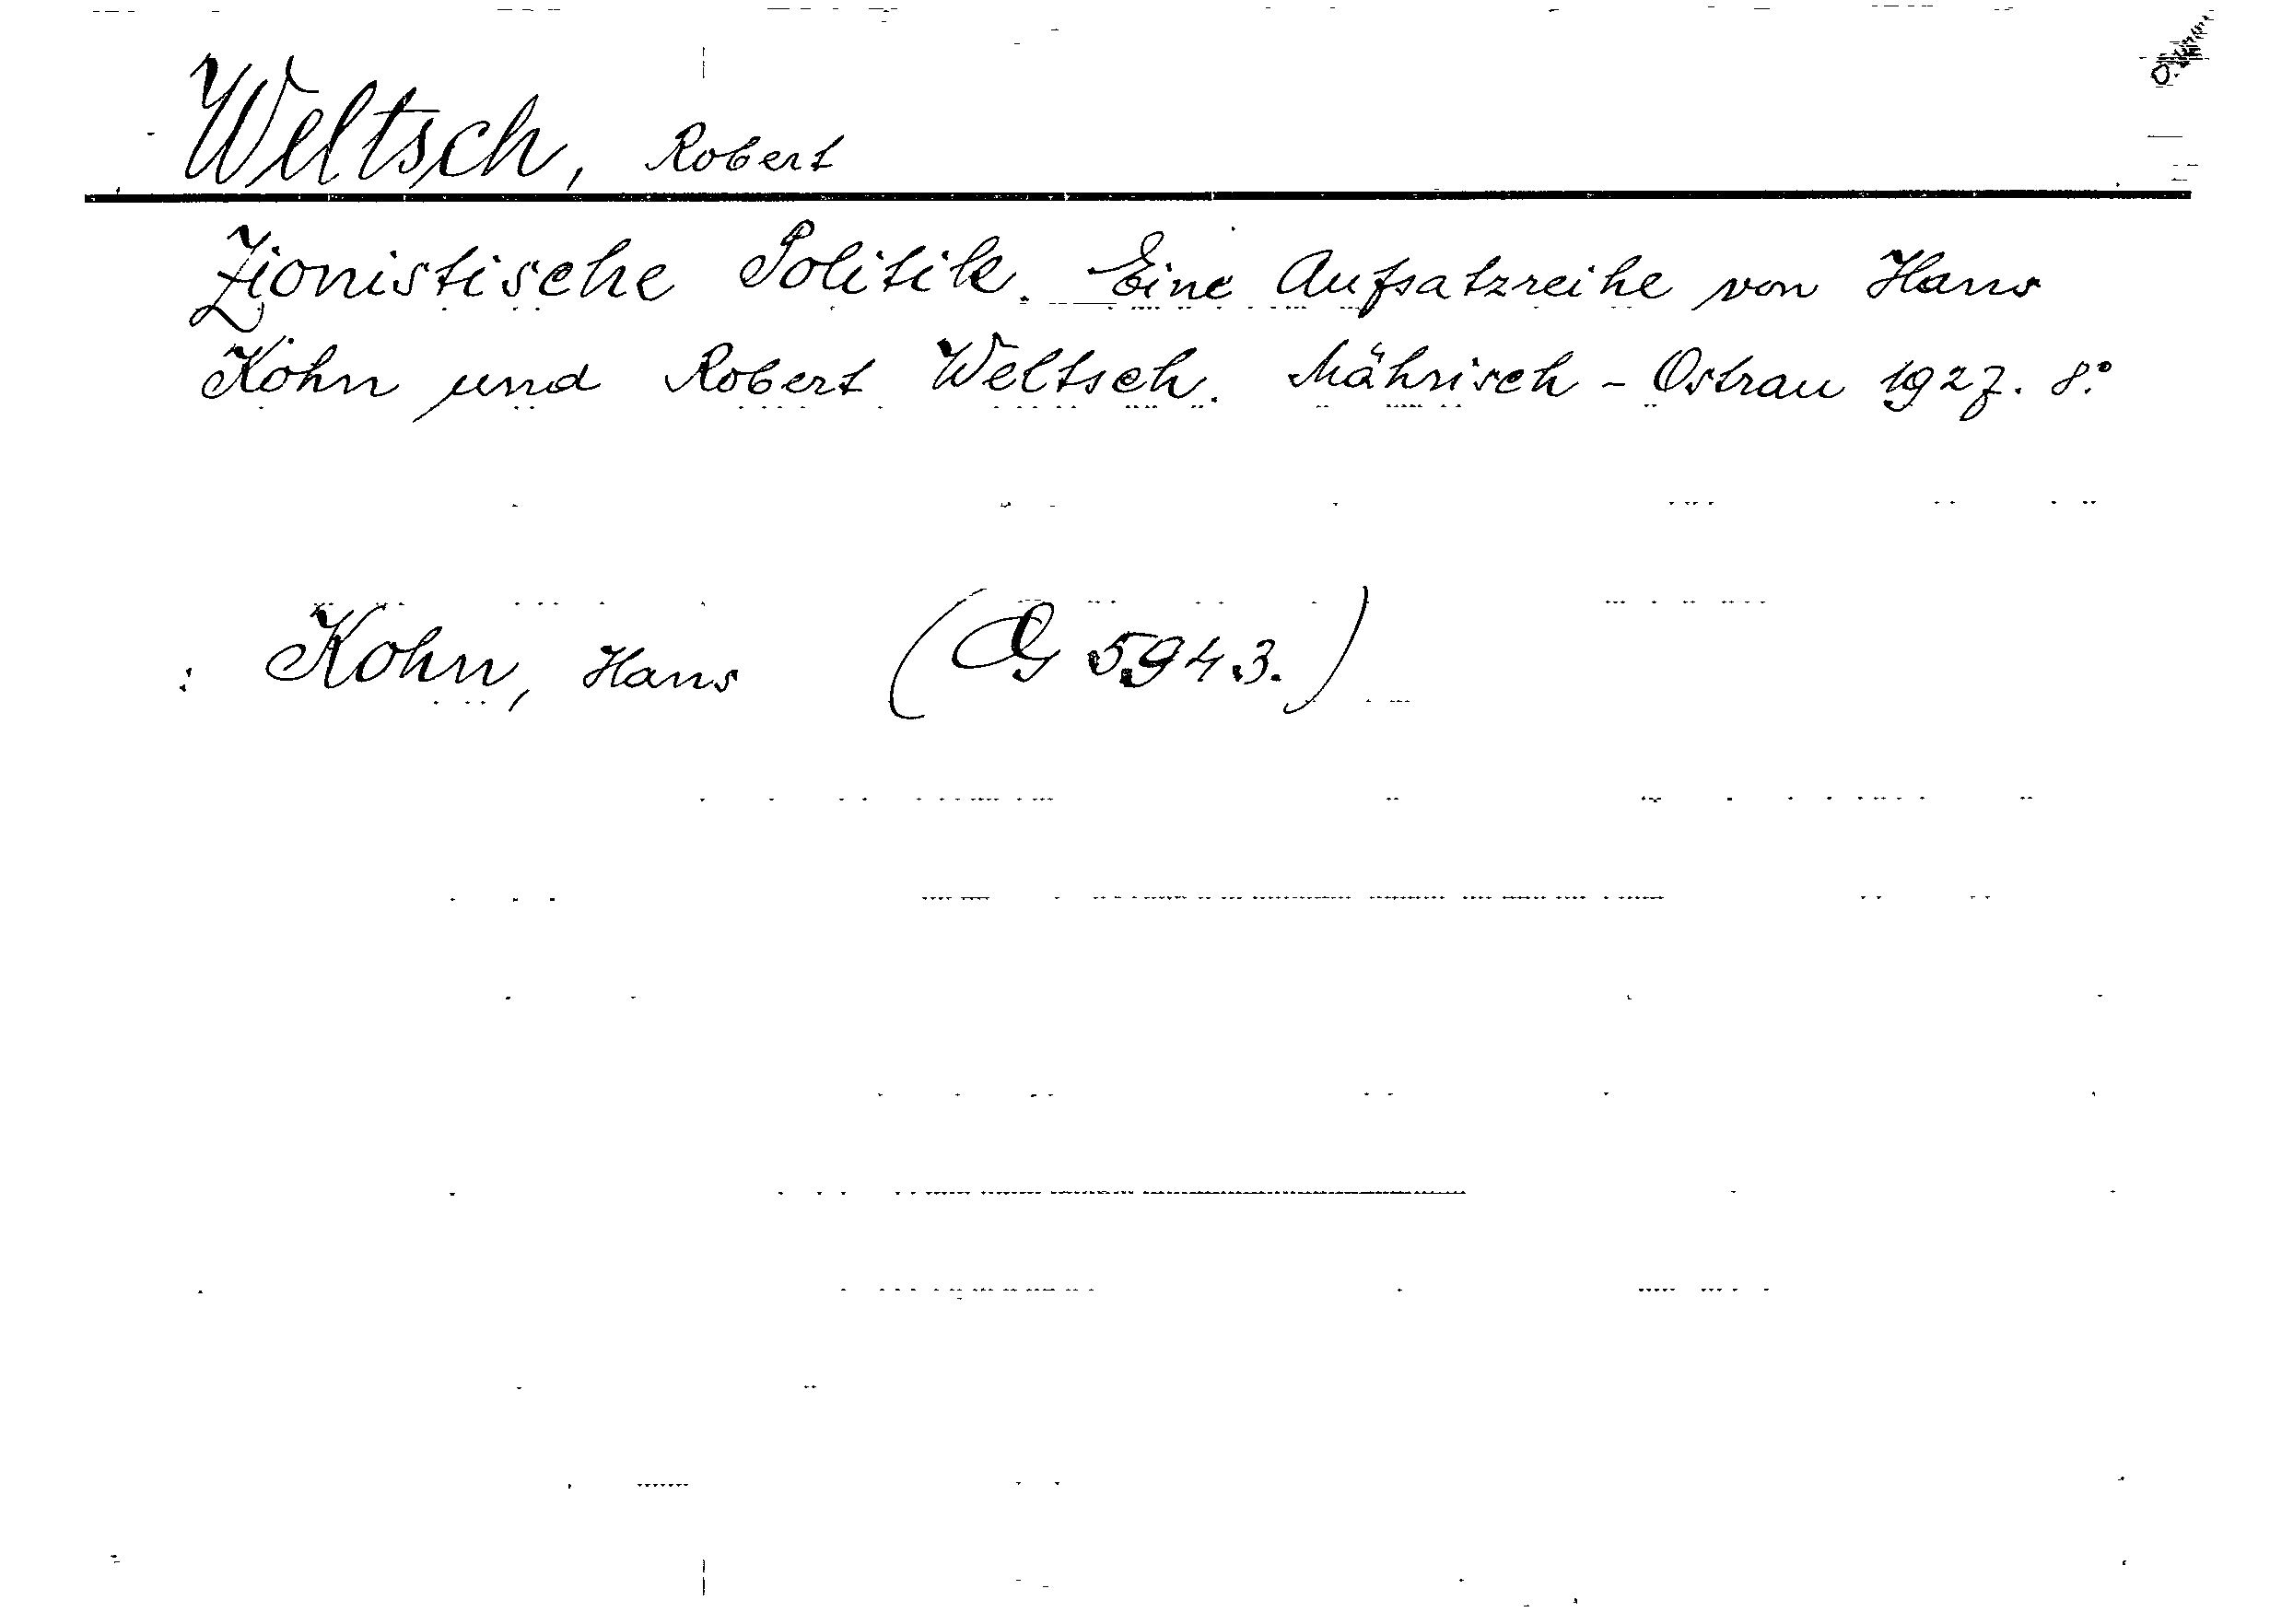 Weltsch, Robert
Zionistische Politik. Eine Aufsatzreihe von Hans
Kohn und Robert Weltsch. Mährisch-Ostrau 1927. 8.°
: Kohn, Hans (G 5943.)